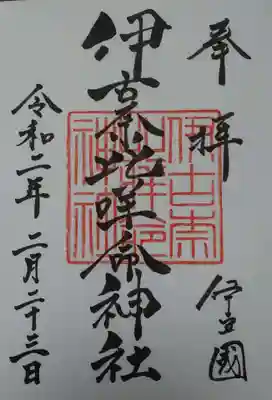 奉拝
伊豆國
伊古奈比咩命神社
令和二年 二月二十三日